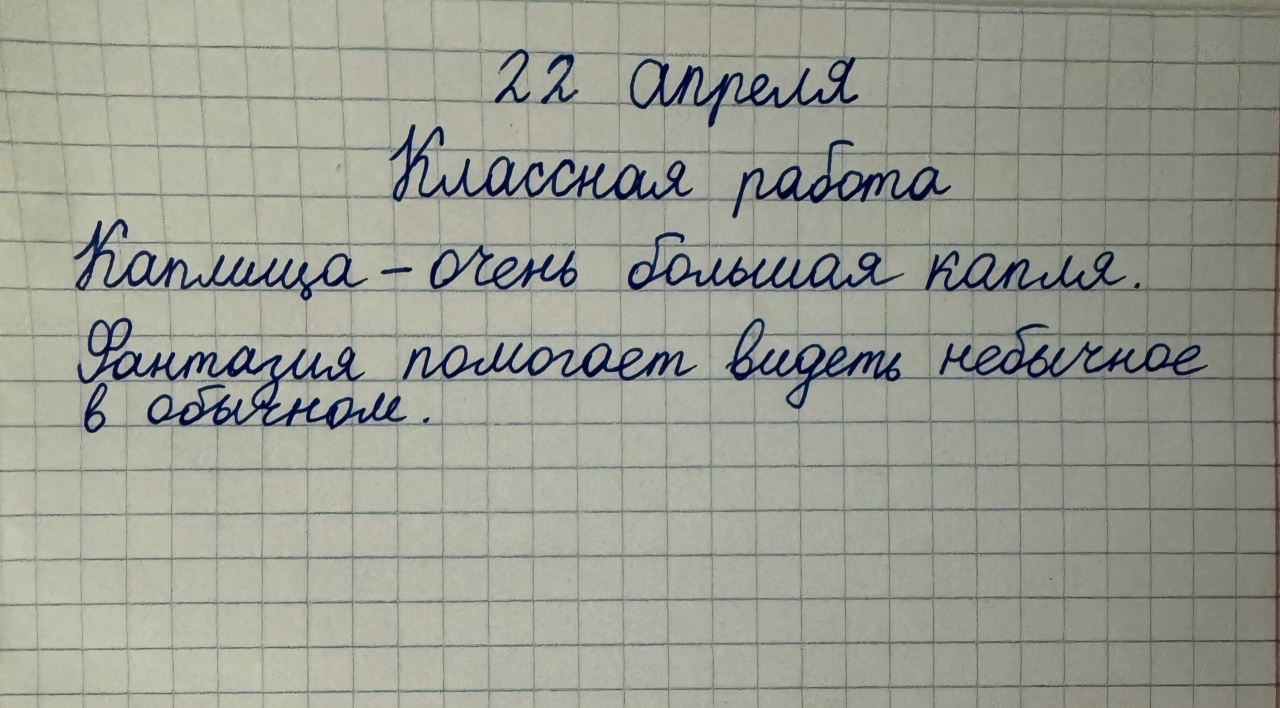 22 апреля
Классная работа
Каплища – очень большая капля.
Фантазия помогает видеть небычное
в обычном.